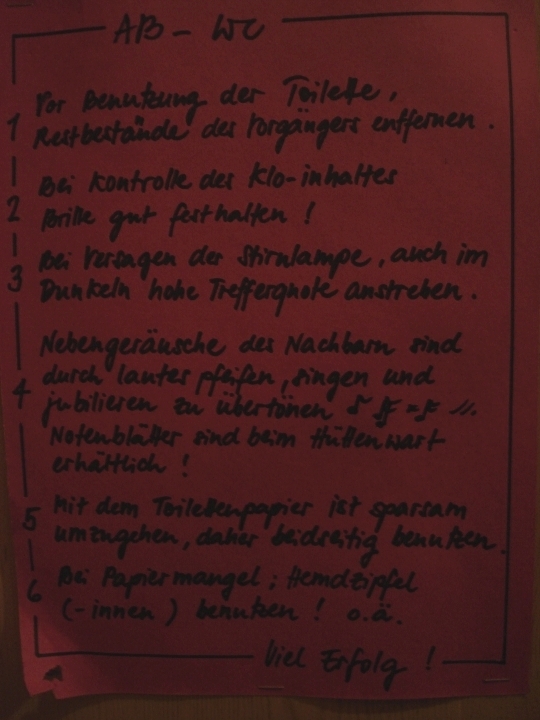 AB - WC
1 Vor Benutzung der Toilette,
Restbestände des Vorgängers entfernen.
2 Bei Kontrolle des Klo-inhaltes
Brille gut festhalten !
3 Bei Versagen der Stirnlampe, auch im
Dunkeln hohe Trefferquote anstreben.
4 Nebengeräusche des Nachbarn sind
durch lautes pfeifen, singen und
jubilieren zu übertönen
Notenblätter sind beim Hüttenwart
erhältlich !
5 Mit dem Toilettenpapier ist sparsam
umzugehen, daher beidseitig benutzen.
6 Bei Papiermangel ; Hemdzipfel
(-innen) benutzen ! o.ä.
Viel Erfolg !